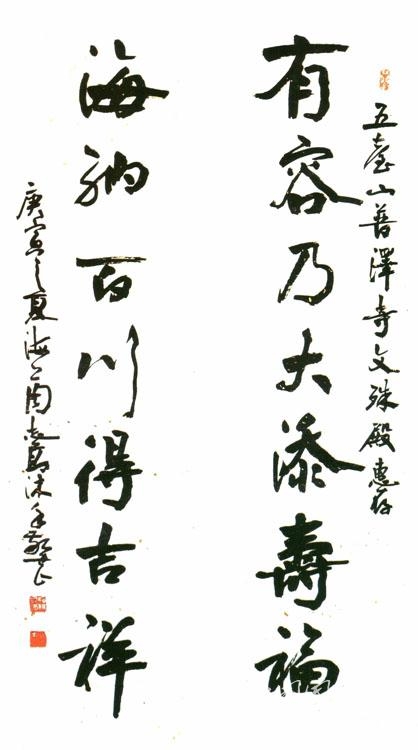 五臺山普澤寺文殊殿惠存
有容乃大添壽福
海納百川得吉祥
庚寅之夏海上周志高沐手敬书